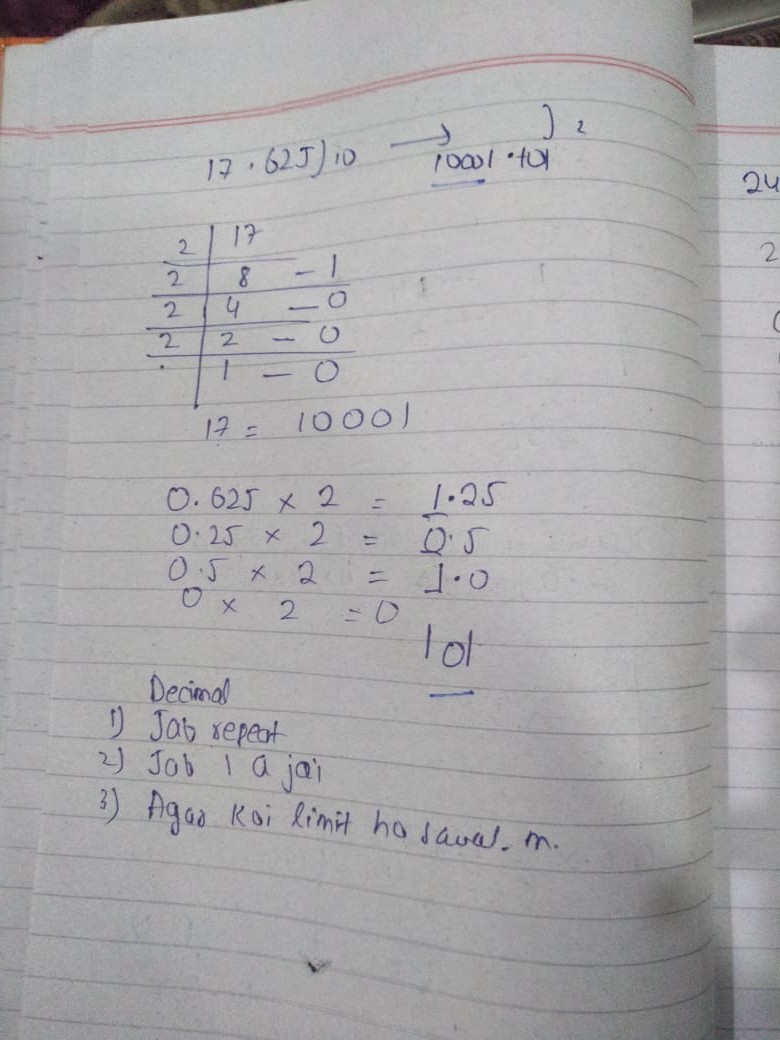 17.625)10 → 10001.101 )2
2 | 17
2 | 8 – 1
2 | 4 – 0
2 | 2 – 0
1 – 0
17 = 10001
0.625 × 2 = 1.25
0.25 × 2 = 0.5
0.5 × 2 = 1.0
0 × 2 = 0
101
Decimal
1) Jab repeat
2) Jab 1 a jai
3) Agar Koi limit ho saval. m.
24
2